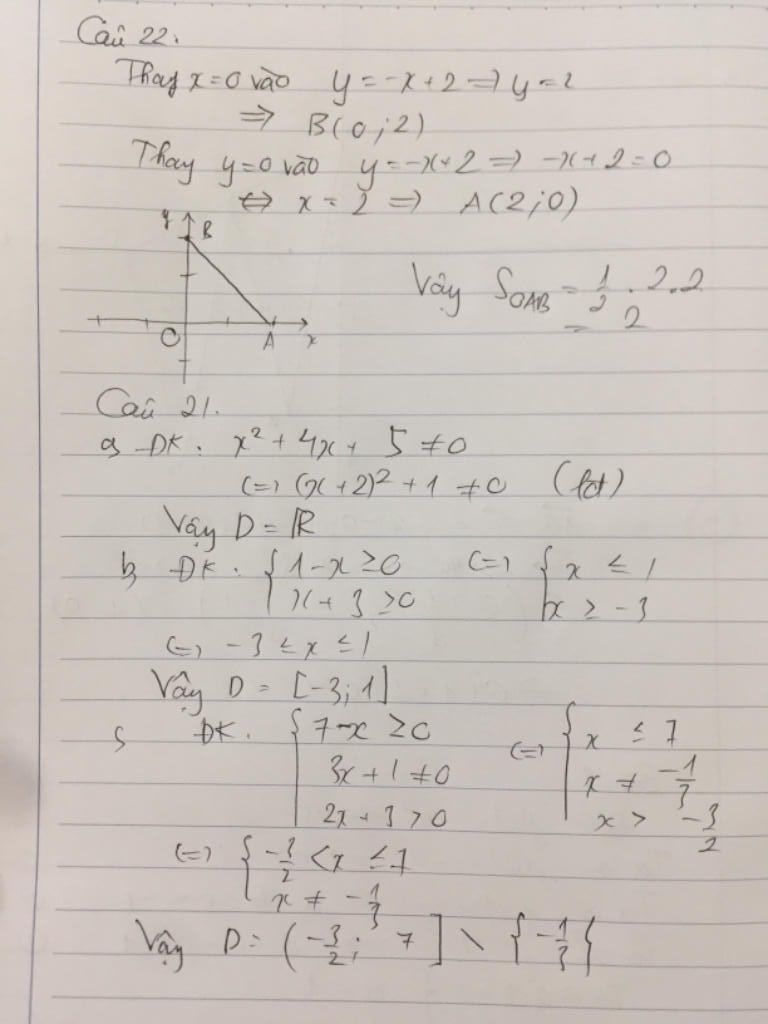 Câu 22.
Thay x=0 vào y=-x+2 => y=2
=> B(0;2)
Thay y=0 vào y=-x+2 => -x+2=0
<=> x=2 => A(2;0)
y B
Vậy S_OAB = 1/2 . 2.2
= 2
O A x
Câu 21.
a, ĐK: x² + 4x + 5 ≠ 0
<=> (x+2)² + 1 ≠ 0 (lđ)
Vậy D = ℝ
b, ĐK: { 1-x ≥ 0 <=> { x ≤ 1
x+3 ≥ 0 x ≥ -3
<=> -3 ≤ x ≤ 1
Vậy D = [-3;1]
c, ĐK: { 7-x ≥ 0 <=> { x ≤ 7
3x+1 ≠ 0 x ≠ -1/3
2x+3 > 0 x > -3/2
<=> { -3/2 < x ≤ 7
x ≠ -1/3
Vậy D = (-3/2; 7] \ {-1/3}